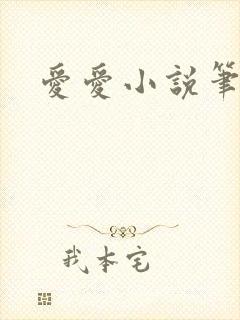 愛愛小説筆
我本宅